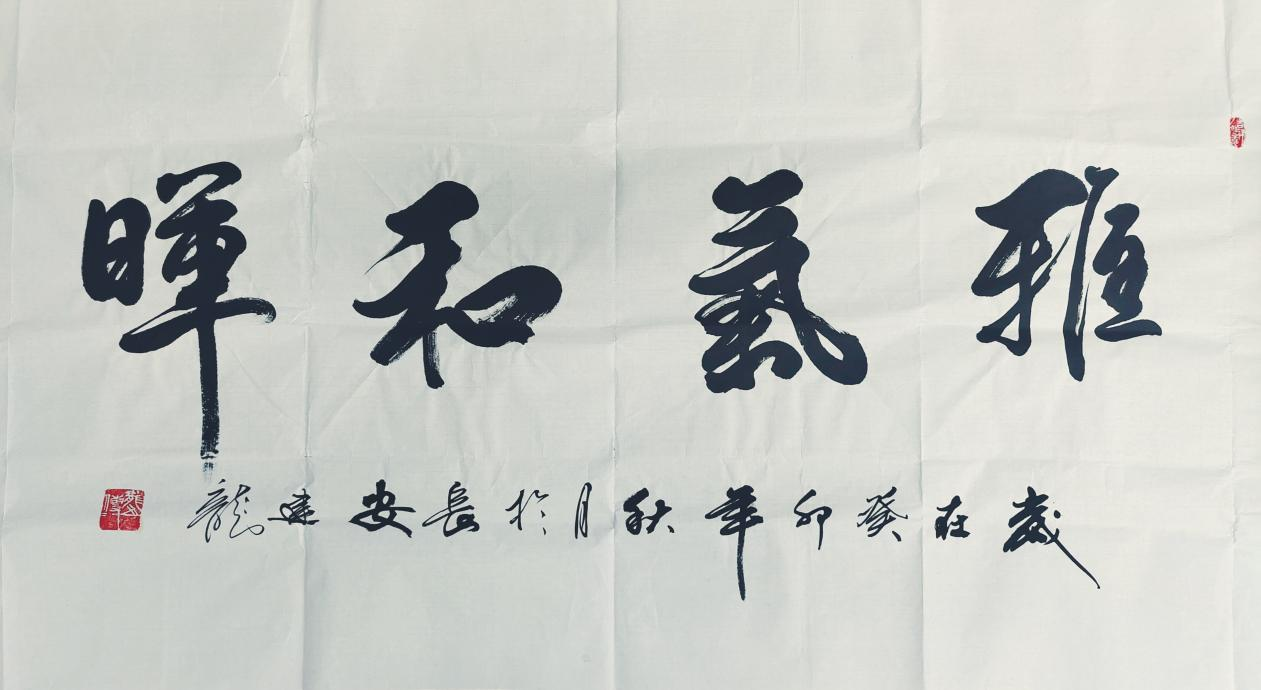 雅氣和暉
歲在癸卯年秋月於長安建龍